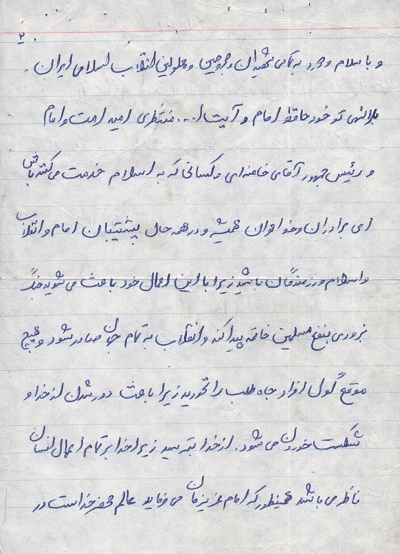 ۲.
و با سلام و درود به تمامی شهیدان و مجروحین و معلولین انقلاب اسلامی ایران.
بارالهی تو خود حافظ امام و آیت ا... منتظری امید امت و امام
و رئیس جمهور آقای خامنه ای و کسانی که به اسلام خدمت می کنند باش
ای برادران و خواهران همیشه و در همه حال پشتیبان امام و انقلاب
و اسلام و رزمندگان باشید زیرا با این اعمال خود باعث می شوید جنگ
بزودی بنفع مسلمین خاتمه پیدا کند و انقلاب به تمام جهان صادر شود و هیچ
موقع گول افراد جاه طلب را نخورید زیرا باعث دور شدن از خدا و
شکست خوردن می شود. از خدا بترسید زیرا خدا بر تمام اعمال انسان
ناظر می باشد همینطور که امام عزیزمان می فرماید عالم محضر خداست در